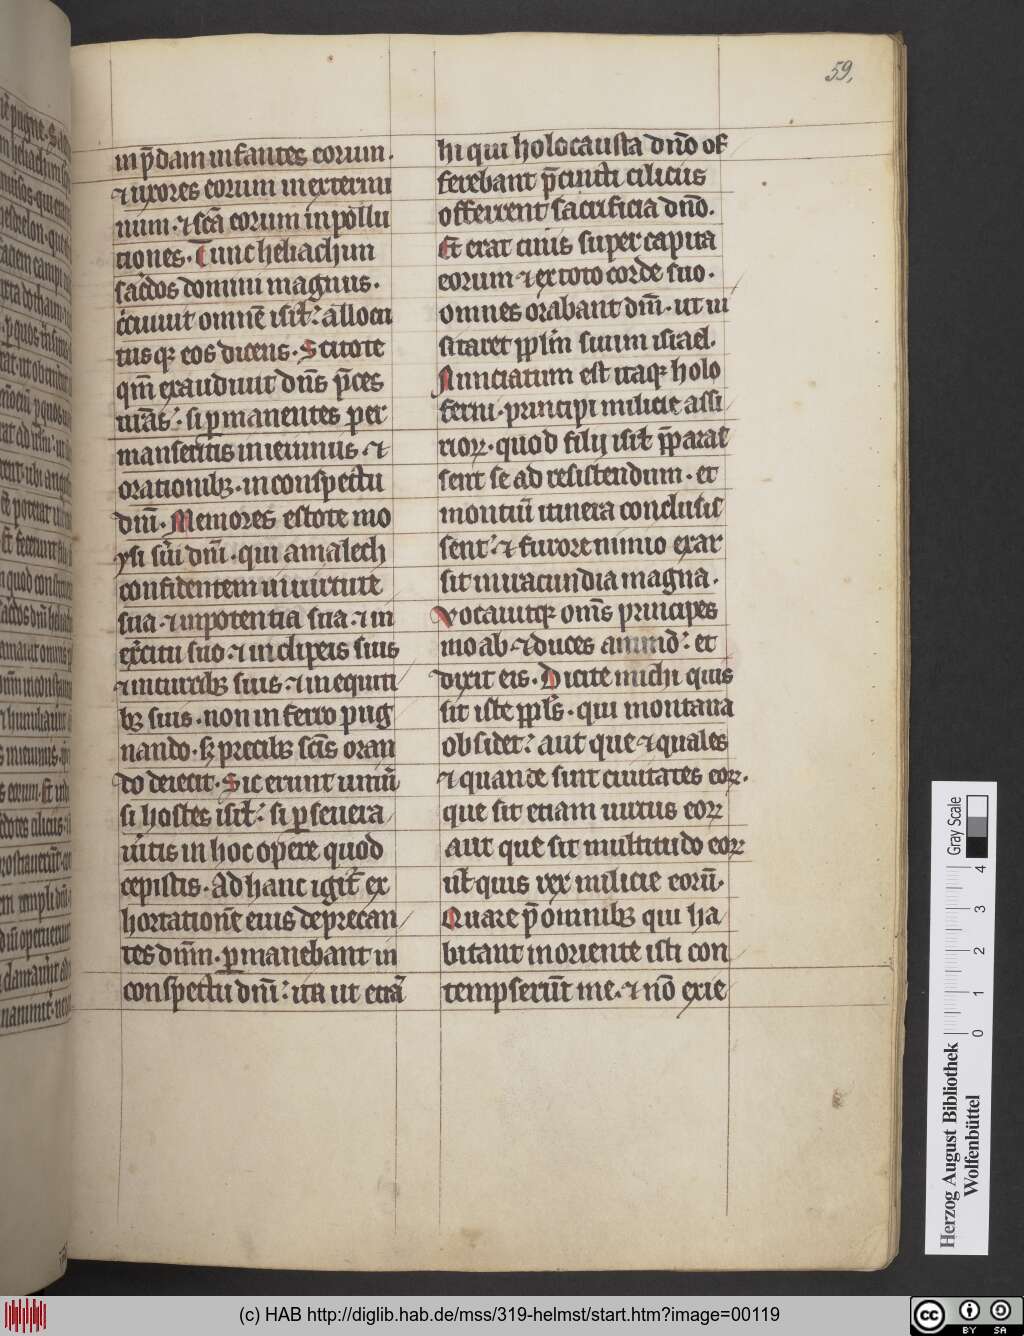 59.
in p̄dam infantes eorum.
⁊ uxores eorum in extermi
num. ⁊ sc̄a eorum in pollu
tiones. Tunc heliachim
sac̾dos domini magnus.
c̾cuiuit omnē isrl̄. allocu
tusq; eos dicens. Scitote
qm̄ exaudiuit dn̄s p̄ces
ur̄as. si ꝑmanentes per
manseritis in ieiuniis. ⁊
orationib; in conspectu
dn̄i. Memores estote mo
ysi s̾ui dn̄i. qui amalech
confidentem in uirtute
sua. ⁊ in potentia sua. ⁊ in
ex̾citu suo. ⁊ in clipeis suis
⁊ in currib; suis. ⁊ in equiti
b; suis. non in ferro pug
nando. sꝫ precib; scīs oran
do deiecit. Sic erunt uniū̾
si hostes isrl̄. si ꝑseuera
u̾itis in hoc opere quod
cepistis. Ad hanc igit̾ ex
hortationē eius deprecan
tes dn̄m. ꝑmanebant in
conspectu dn̄i. ita ut etiā
hi qui holocausta dn̄o of
ferebant p̄cincti ciliciis
offerrent sacrificia dn̄o.
Et erat cinis super capita
eorum ⁊ ex toto corde suo.
omnes orabant dn̄m. ut ui
sitaret ppl̄m suum israel.
Nunciatum est itaq; holo
ferni. principi milicie assi
rioꝝ. quod filij isrl̄ p̄paras
sent se ad resistendum. et
montiū itinera conclusis
sent. ⁊ furore nimio exar
sit in iracundia magna.
Vocauitq; om̄s principes
moab. ⁊ duces ammō. et
dixit eis. Dicite michi quis
sit iste ppl̄s. qui montana
obsidet. aut que ⁊ quales
⁊ quante sint ciuitates eoꝝ.
que sit etiam uirtus eoꝝ
aut que sit multitudo eoꝝ
ul̄ quis rex milicie eorū.
Quare p̄ omnib; qui ha
bitant in oriente isti con
tempserūt me. ⁊ nō exie
Gray Scale
0 1 2 3 4
Herzog August Bibliothek
Wolfenbüttel
(c) HAB http://diglib.hab.de/mss/319-helmst/start.htm?image=00119
cc BY SA